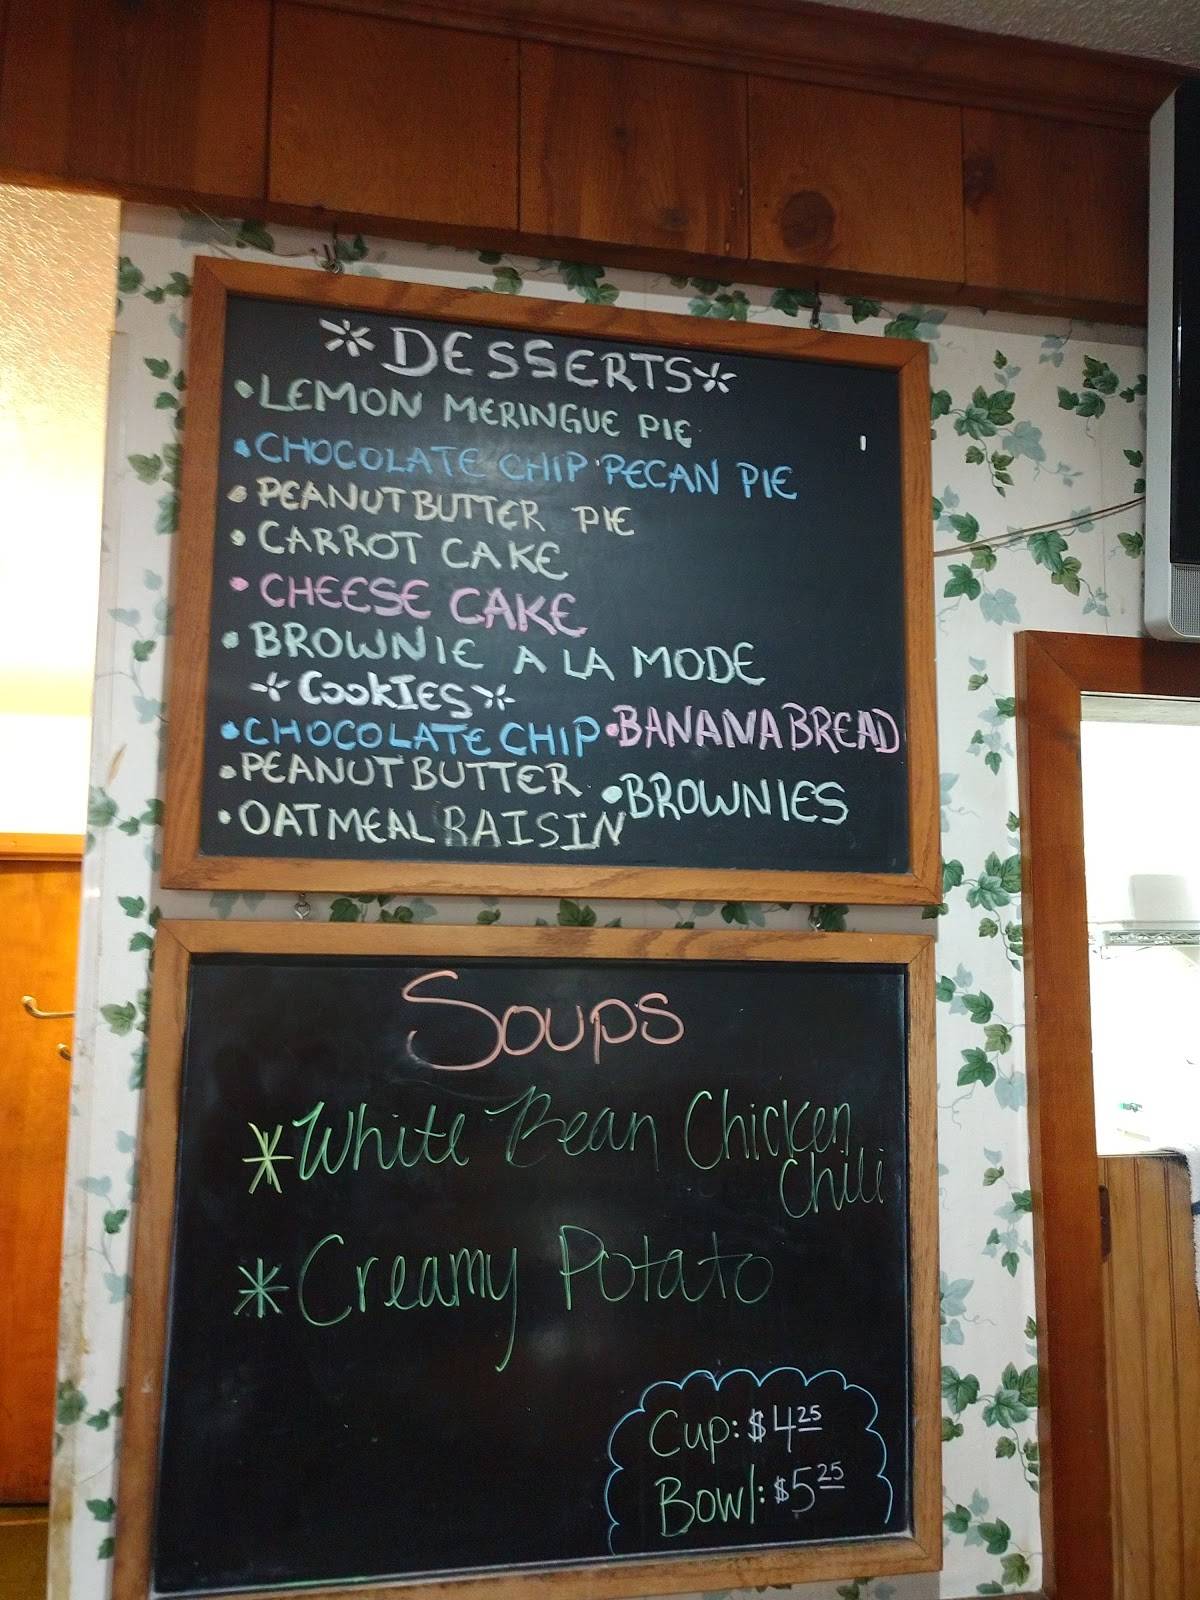 DESSERTS
• LEMON MERINGUE PIE
• CHOCOLATE CHIP PECAN PIE
• PEANUT BUTTER PIE
• CARROT CAKE
• CHEESE CAKE
• BROWNIE A LA MODE
COOKIES
• CHOCOLATE CHIP
• PEANUT BUTTER
• OATMEAL RAISIN
• BANANA BREAD
• BROWNIES
Soups
* White Bean Chicken
Chili
* Creamy Potato
Cup: $4.25
Bowl: $5.25